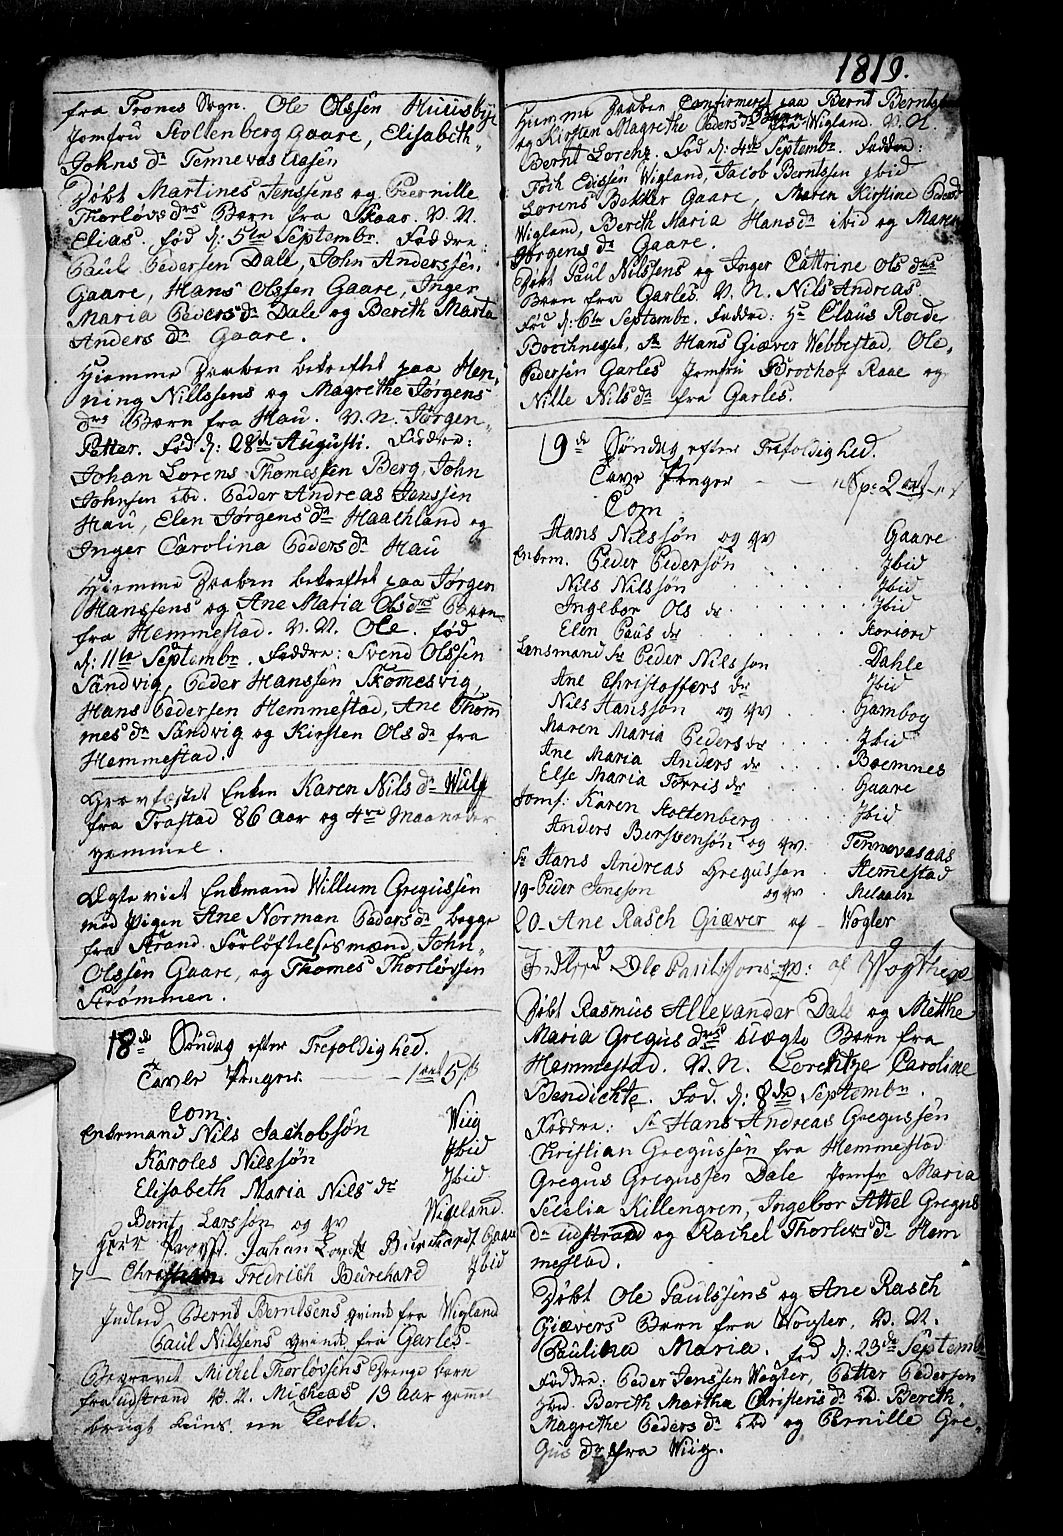 1819.
fra Trones Sogn. Ole Olssen Huusbye
Jomfru Stoltenberg Gaare, Elisabeth
Johns dr Tennevas Aasen
Døbt Martines Jenssens og Pernille
Thorløvs drs Barn fra Skaar. V. N.
Elias. fød d: 5te Septembr. Faddre:
Paul Pedersen Dale, John Anderssen
Gaare, Hans Olssen Gaare, Inger
Maria Peders dr Dale og Bereth Marta
Anders dr Gaare.
Hiemme Daaben bekreftet paa Hen-
ning Nillssens og Magrethe Jørgens
drs Barn fra Hau. V. N. Jørgen
Petter. Fød d: 28de Augusti. Faddre:
Johan Lorens Thomessen Berg, John
Johnsen ibd. Peder Andreas Jenssen
Hau, Elen Jørgens dr Haathland og
Inger Carolina Peders dr Hau
Hiemme Daaben bekreftet paa Jørgen
Hanssens og Ane Maria Ols drs Barn
fra Hemmestad. V. N. Ole. fød
d: 11te Septembr. Faddre: Svend Olssen
Sandvig, Peder Hanssen Skomesvig,
Hans Pedersen Hemmestad, Ane Thom
mes dr Sandvig og Kirsten Ols dr fra
Hemmestad.
Gravfæstet Enken Karen Nils dr Wulf
fra Trastad 86 Aar og 4re Maaneder
gammel.
Ægteviet Enkmand Willum Gregussen
med Pigen Ane Norman Peders dr begge
fra Strand. Forløftelsesmænd, John
Olssen Gaare, og Thomes Thorløvsen
Strømmen.
18de Søndag efter Trefoldighed.
Tavle Penger - - 1 ort 5 s
Com.
Enkemand Nils Jachobsøn Wiig
Karoles Nilssøn Ibid
Elisabeth Maria Nils dr Ibid
Bernt Larssøn og qv Wigland.
Herr Provst. Johan Lorntz Burchardt Gaare
7 - Christian Fredrich Burchard Ibid
Indled Bernt Berntsens qvinde fra Wigland
Paul Nilssens qvinde fra Garles
Begravet Michel Thorløvsens Drenge barn
fra udstrand V. N. Micheas 13 Aar gamel
1819.
Hiemme Daaben Confirmeret paa Bernt Berntsens
og Kirsten Magrethe Peders dr Barn fra Wigland. V. N.
Bernt Lorenz. Fød d: 4de Septembr. Faddre:
Edissen Wigland, Jacob Berntssen ibid
Lorens Bekker Gaare, Maren Kirstine Peders dr
Wigland, Bereth Maria Hans dr ibid og Maren
Jørgens dr Gaare.
Døbt Paul Nilssens og Inger Cattrine Ols drs
Barn fra Garles. V. N. Nils Andreas.
Fød d: 6te Septembr. Faddre: Hr Claus Roede
Sr Hans Giæver Webbestad, Ole
Pedersen Garles Jomfru Brochof Raae og
Nille Nils dr fra Garles.
19de Søndag efter Trefoldighed.
Tavle Penger - - Sp: 2 ort
Com
Hans Nilssøn og qv Gaare
Enkem. Peder Pedersøn Ibid
Nils Nilssøn Ibid
Ingebor Ols dr Ibid
Elen Paus dr
Lænsmand Sr Peder Nilsson Dahle
Ane Christoffers dr Ibid
Nils Hanssøn og qv Gambog
Maren Maria Peders dr Ibid
Ane Maria Anders dr Boemnes
Else Maria Torris dr Gaare
Jomf: Karen Stoltenberg Ibid
Anders Bersvensøn og qv. Tennevasaas
Sr Hans Andreas Gregussøn Hemestad
19- Peder Jonsson og qv Melaaen
20- Ane Rasch Giæver af - Wogler
Indleed Ole Paulssøns qv: af
Døbt Rasmus Allexander Dale og Metthe
Maria Gregus drs uægte Barn fra
Hemmestad. V. N. Lorentze Caroline
Bendichte. Fød d: 8de Septembr.
Faddre: Sr Hans Andreas Gregussen
Christian Gregussen fra Hemmestad
Gregus Gregussen Dale Jomfr Maria
Secelia Killengren, Ingebor Attel Gregus
dr udstrand og Rachel Thorløvs dr Hem
mestad.
Døbt Ole Paulssens og Ane Rasch
Giævers Barn fra Wogler, V. N.
Paulina Maria. fød d: 23de Septembr
Faddre: Peder Jenssen Wogler, Petter Pedersen
Ibd. Bereth Martha Christens dr ibd. Bereth
Magrethe Peders dr ibd og Pernille Gre
gus dr fra Wiig.